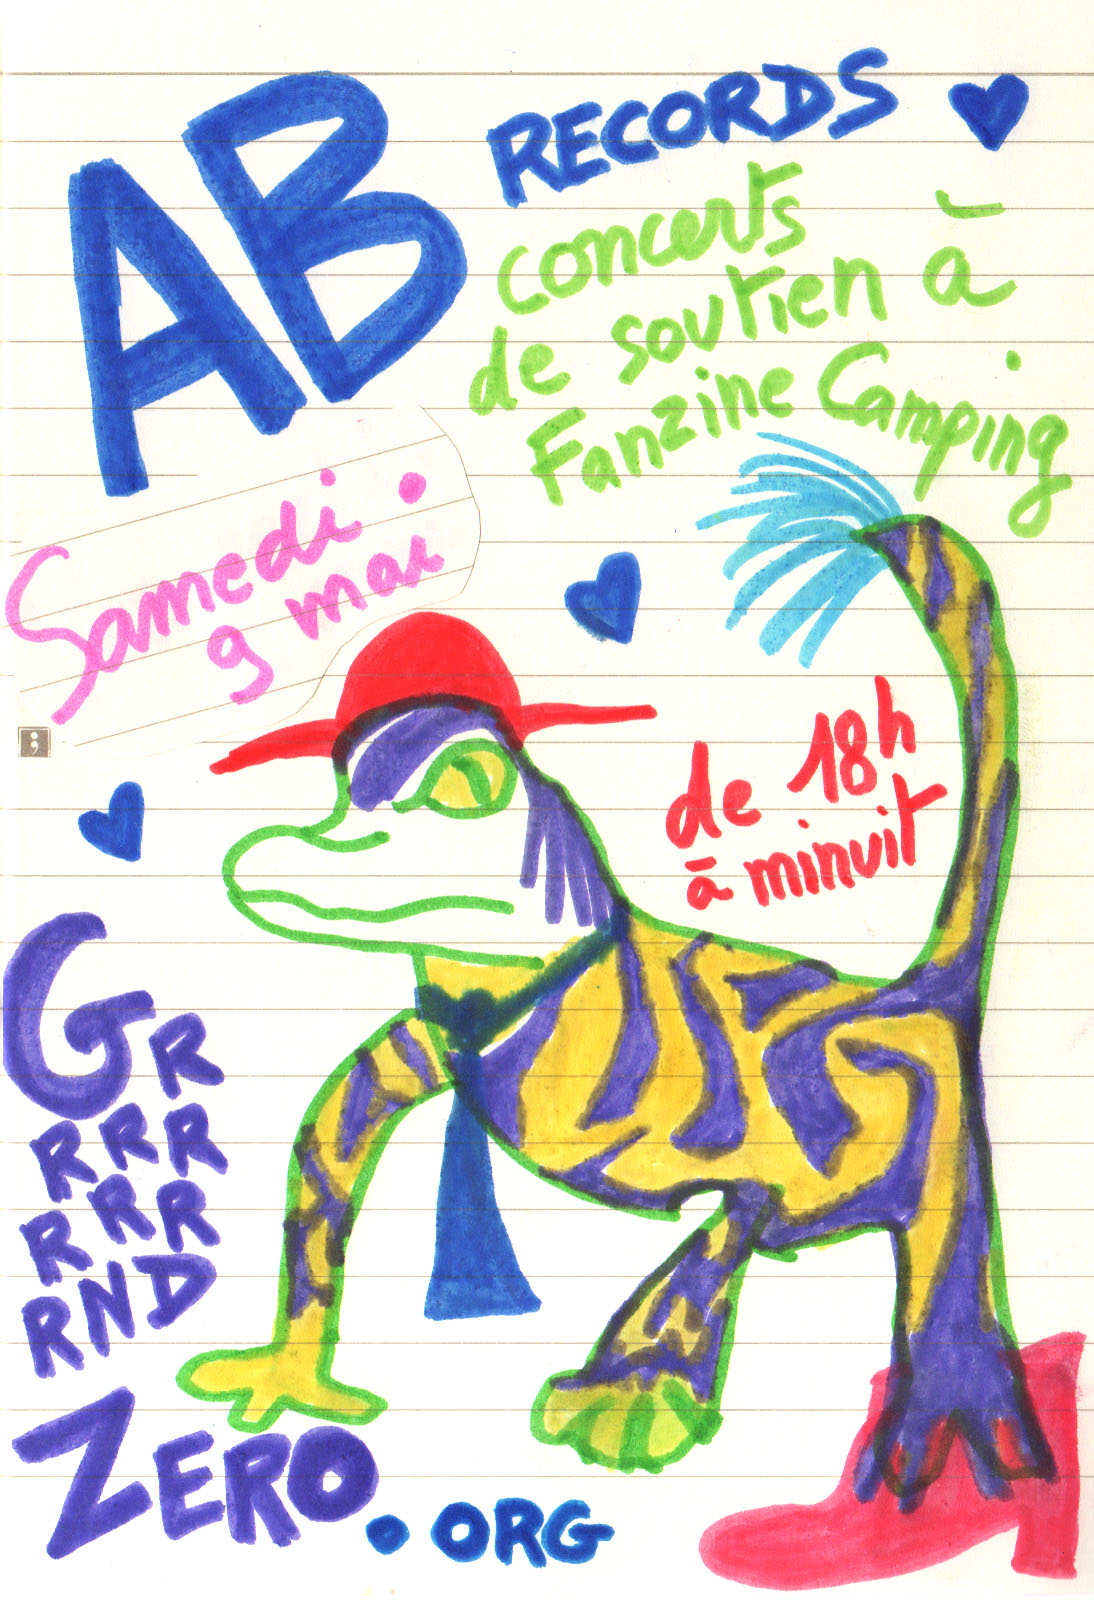 AB
RECORDS
concerts
de soutien à
Fanzine Camping
Samedi
9 mai
de 18h
à minuit
GR
RRR
RRR
RND
ZERO
.ORG